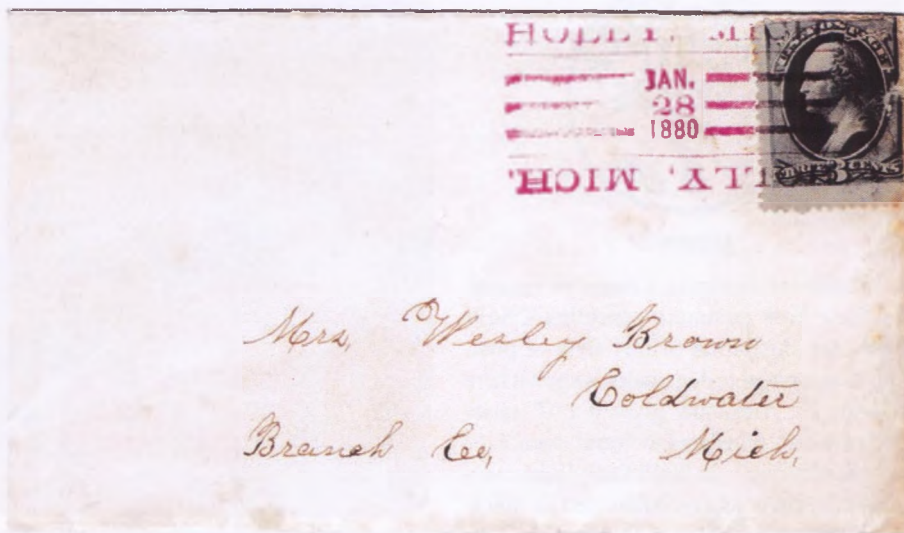 HOLLY, MICH.
JAN.
28
1880
HOLLY, MICH.
3 CENTS
Mrs, Wesley Brown
Coldwater
Branch Co, Mich,